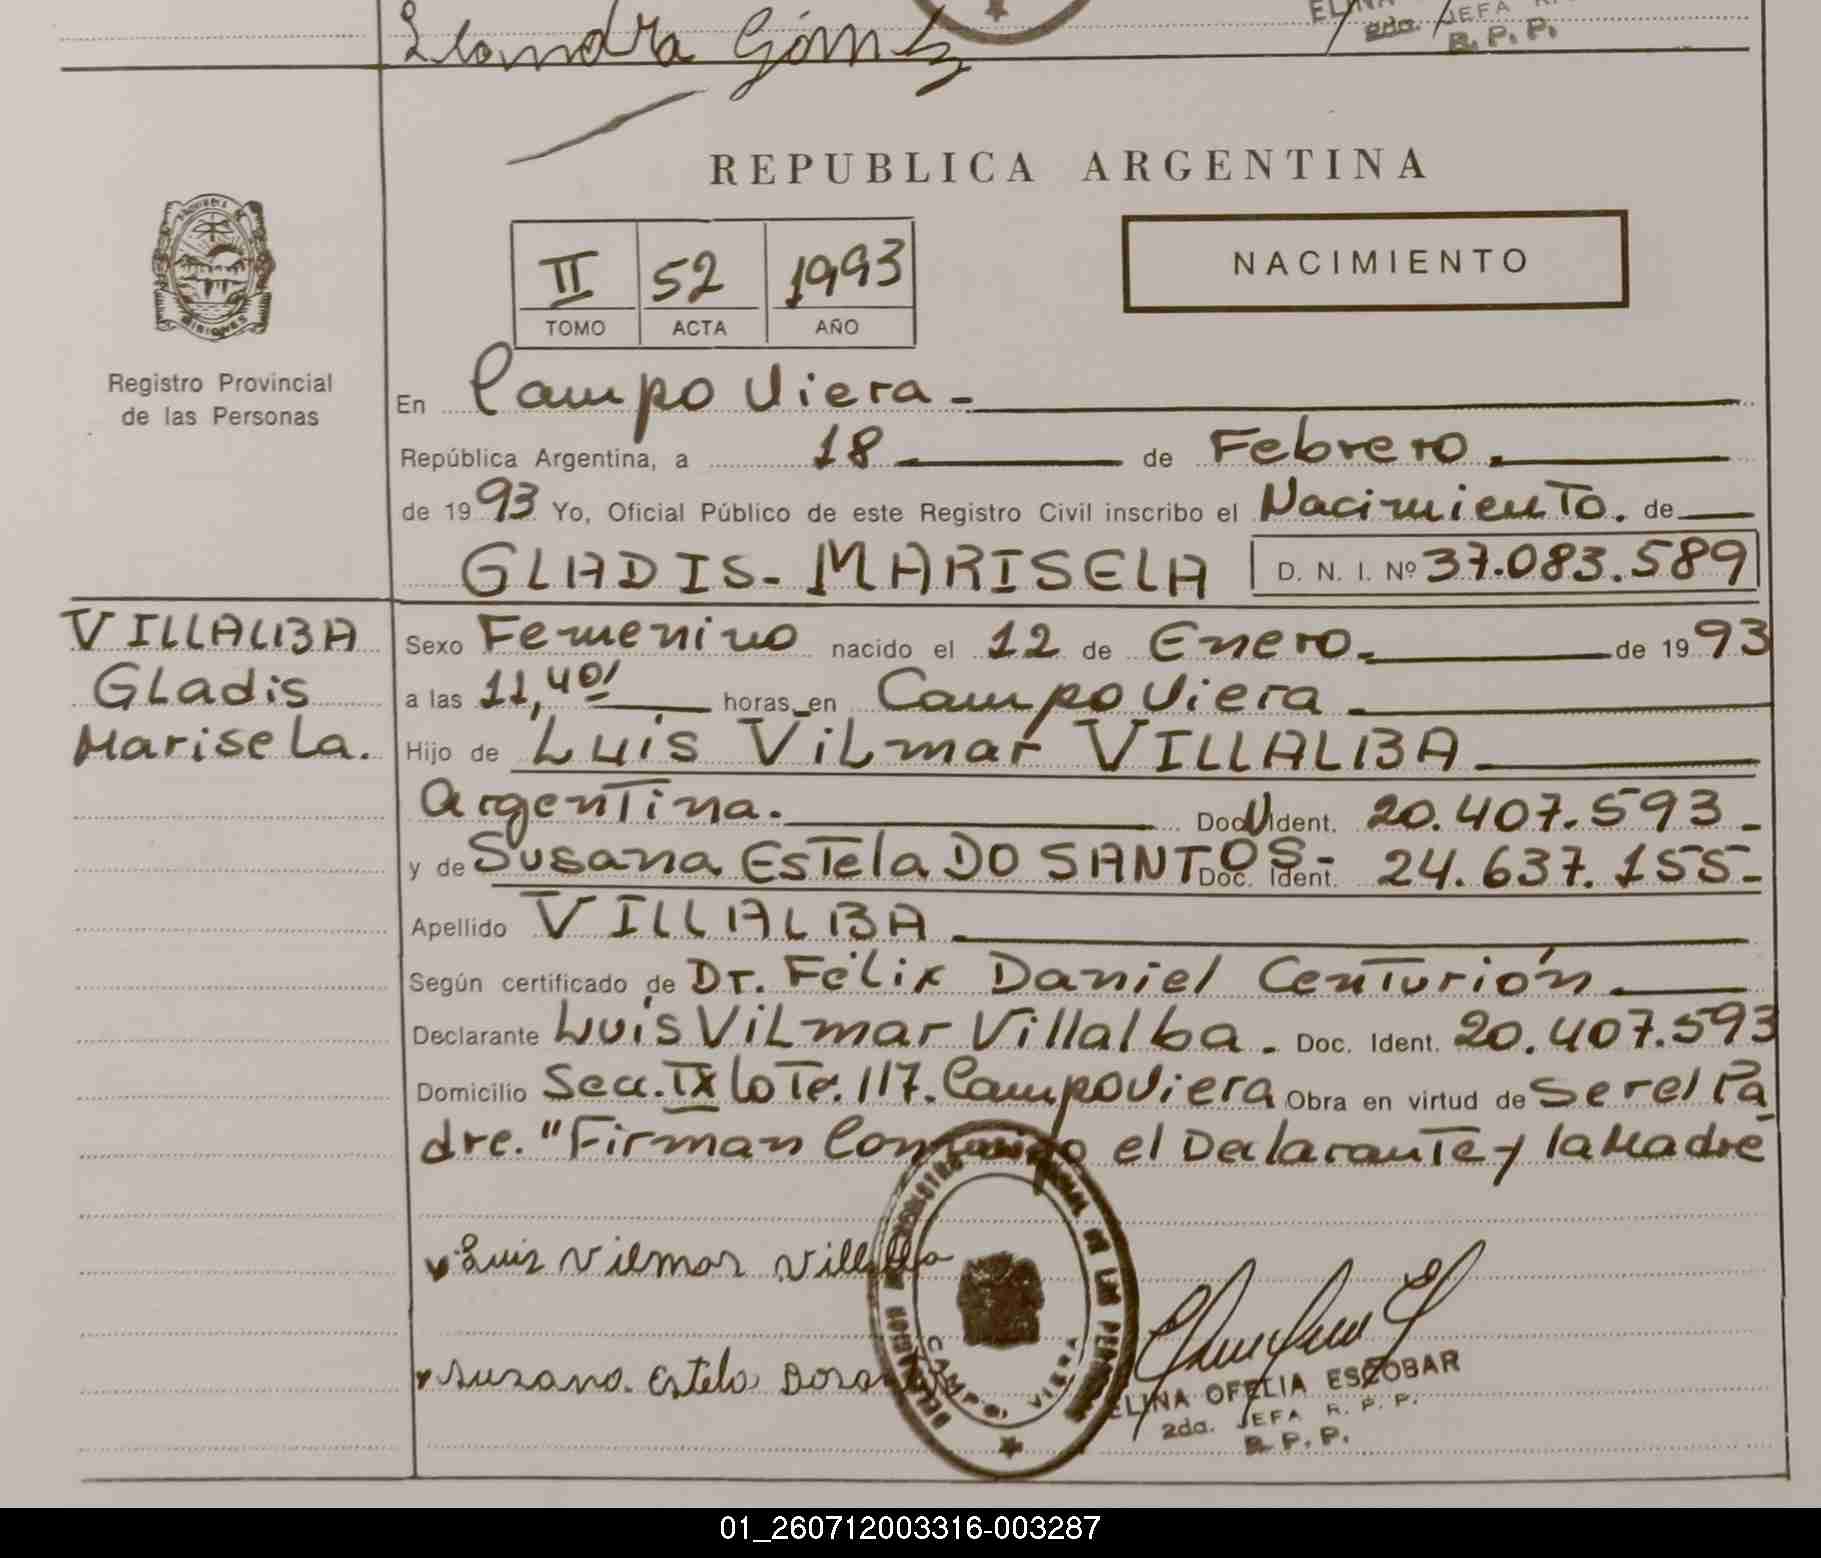 Gómez
2da. JEFA
R. P. P.
REPUBLICA ARGENTINA
II 52 1993
TOMO ACTA AÑO
NACIMIENTO
MISIONES
Registro Provincial
de las Personas
En Campo Viera.-
República Argentina, a 18 de Febrero.
de 1993 Yo, Oficial Público de este Registro Civil inscribo el Nacimiento. de
GLADIS- MARISELA D. N. I. Nº 37.083.589
VILLALBA
Gladis
Marisela.
Sexo Femenino nacido el 12 de Enero. de 1993
a las 11,40' horas en Campo Viera.
Hijo de Luis Vilmar VILLALBA
Argentina. Doc. Ident. 20.407.593-
y de Susana Estela DO SANTOS- Doc. Ident. 24.637.155-
Apellido VILLALBA
Según certificado de Dr. Félix Daniel Centurión
Declarante Luis Vilmar Villalba. Doc. Ident. 20.407.593
Domicilio Secc. IX lote. 117. Campo Viera Obra en virtud de Ser el Pa
dre. "Firman Conmigo el Declarante y la Madre
Luis Vilmar Villalba
Susana Estela
CAMPO VIERA
ELINA OFELIA ESCOBAR
2da. JEFA R. P. P.
R. P. P.
01_260712003316-003287